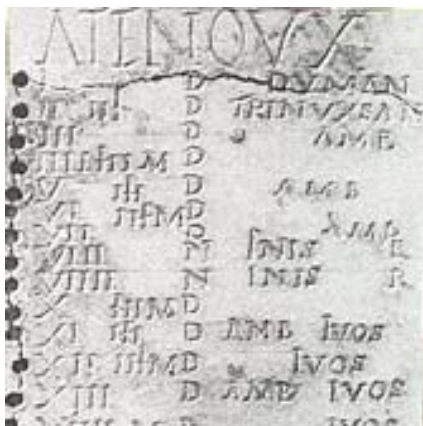 ATENOVX
D DVMAN
D TRINVXSAN
III D AMB
IIII M D
V D AMB
VI M D
VII D AMB
VIII N INIS R
VIIII N INIS R
X M D
XI D AMB IVOS
XII M D IVOS
XIII D AMB IVOS
M D IVOS